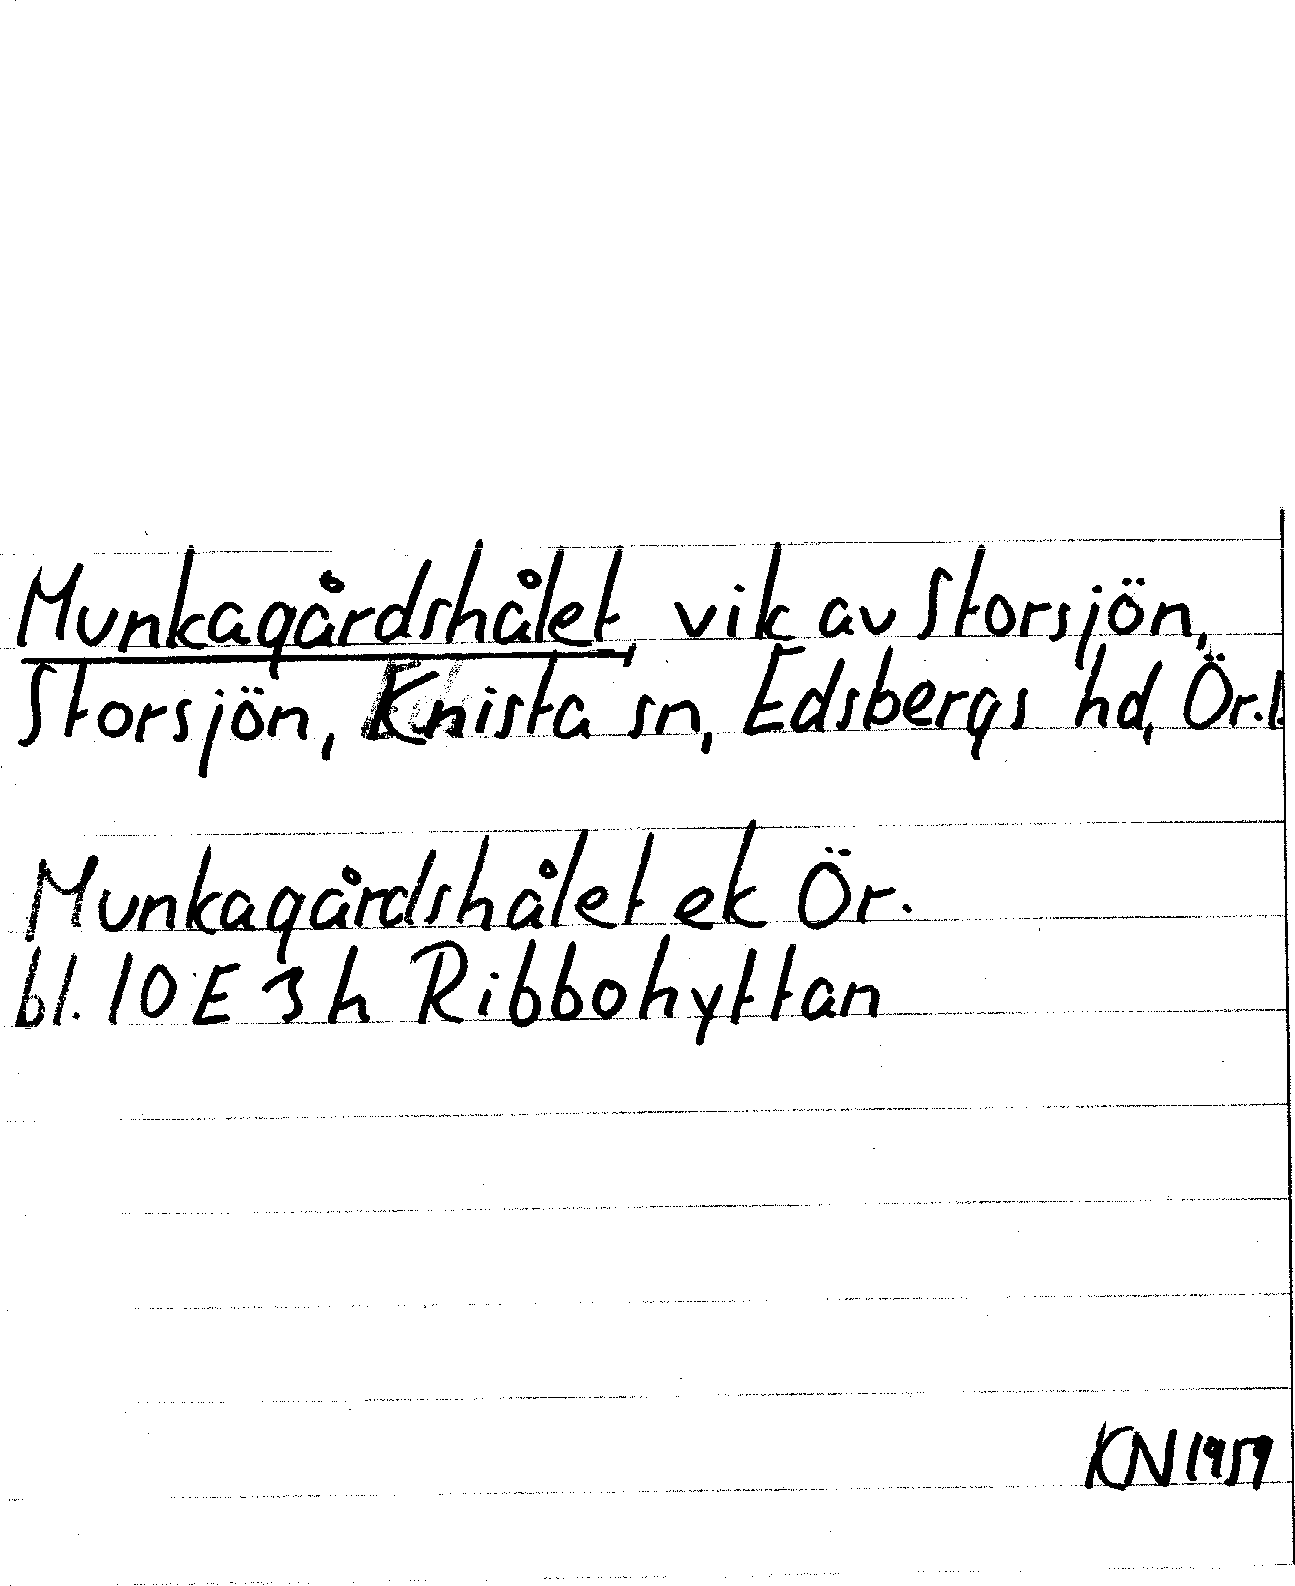 Munkagårdshålet, vik av Storsjön,
Storsjön, Knista sn, Edsbergs hd, Ör.l.
Munkagårdshålet ek Ör.
bl. 10 E 3 h Ribbohyttan
KN 1959